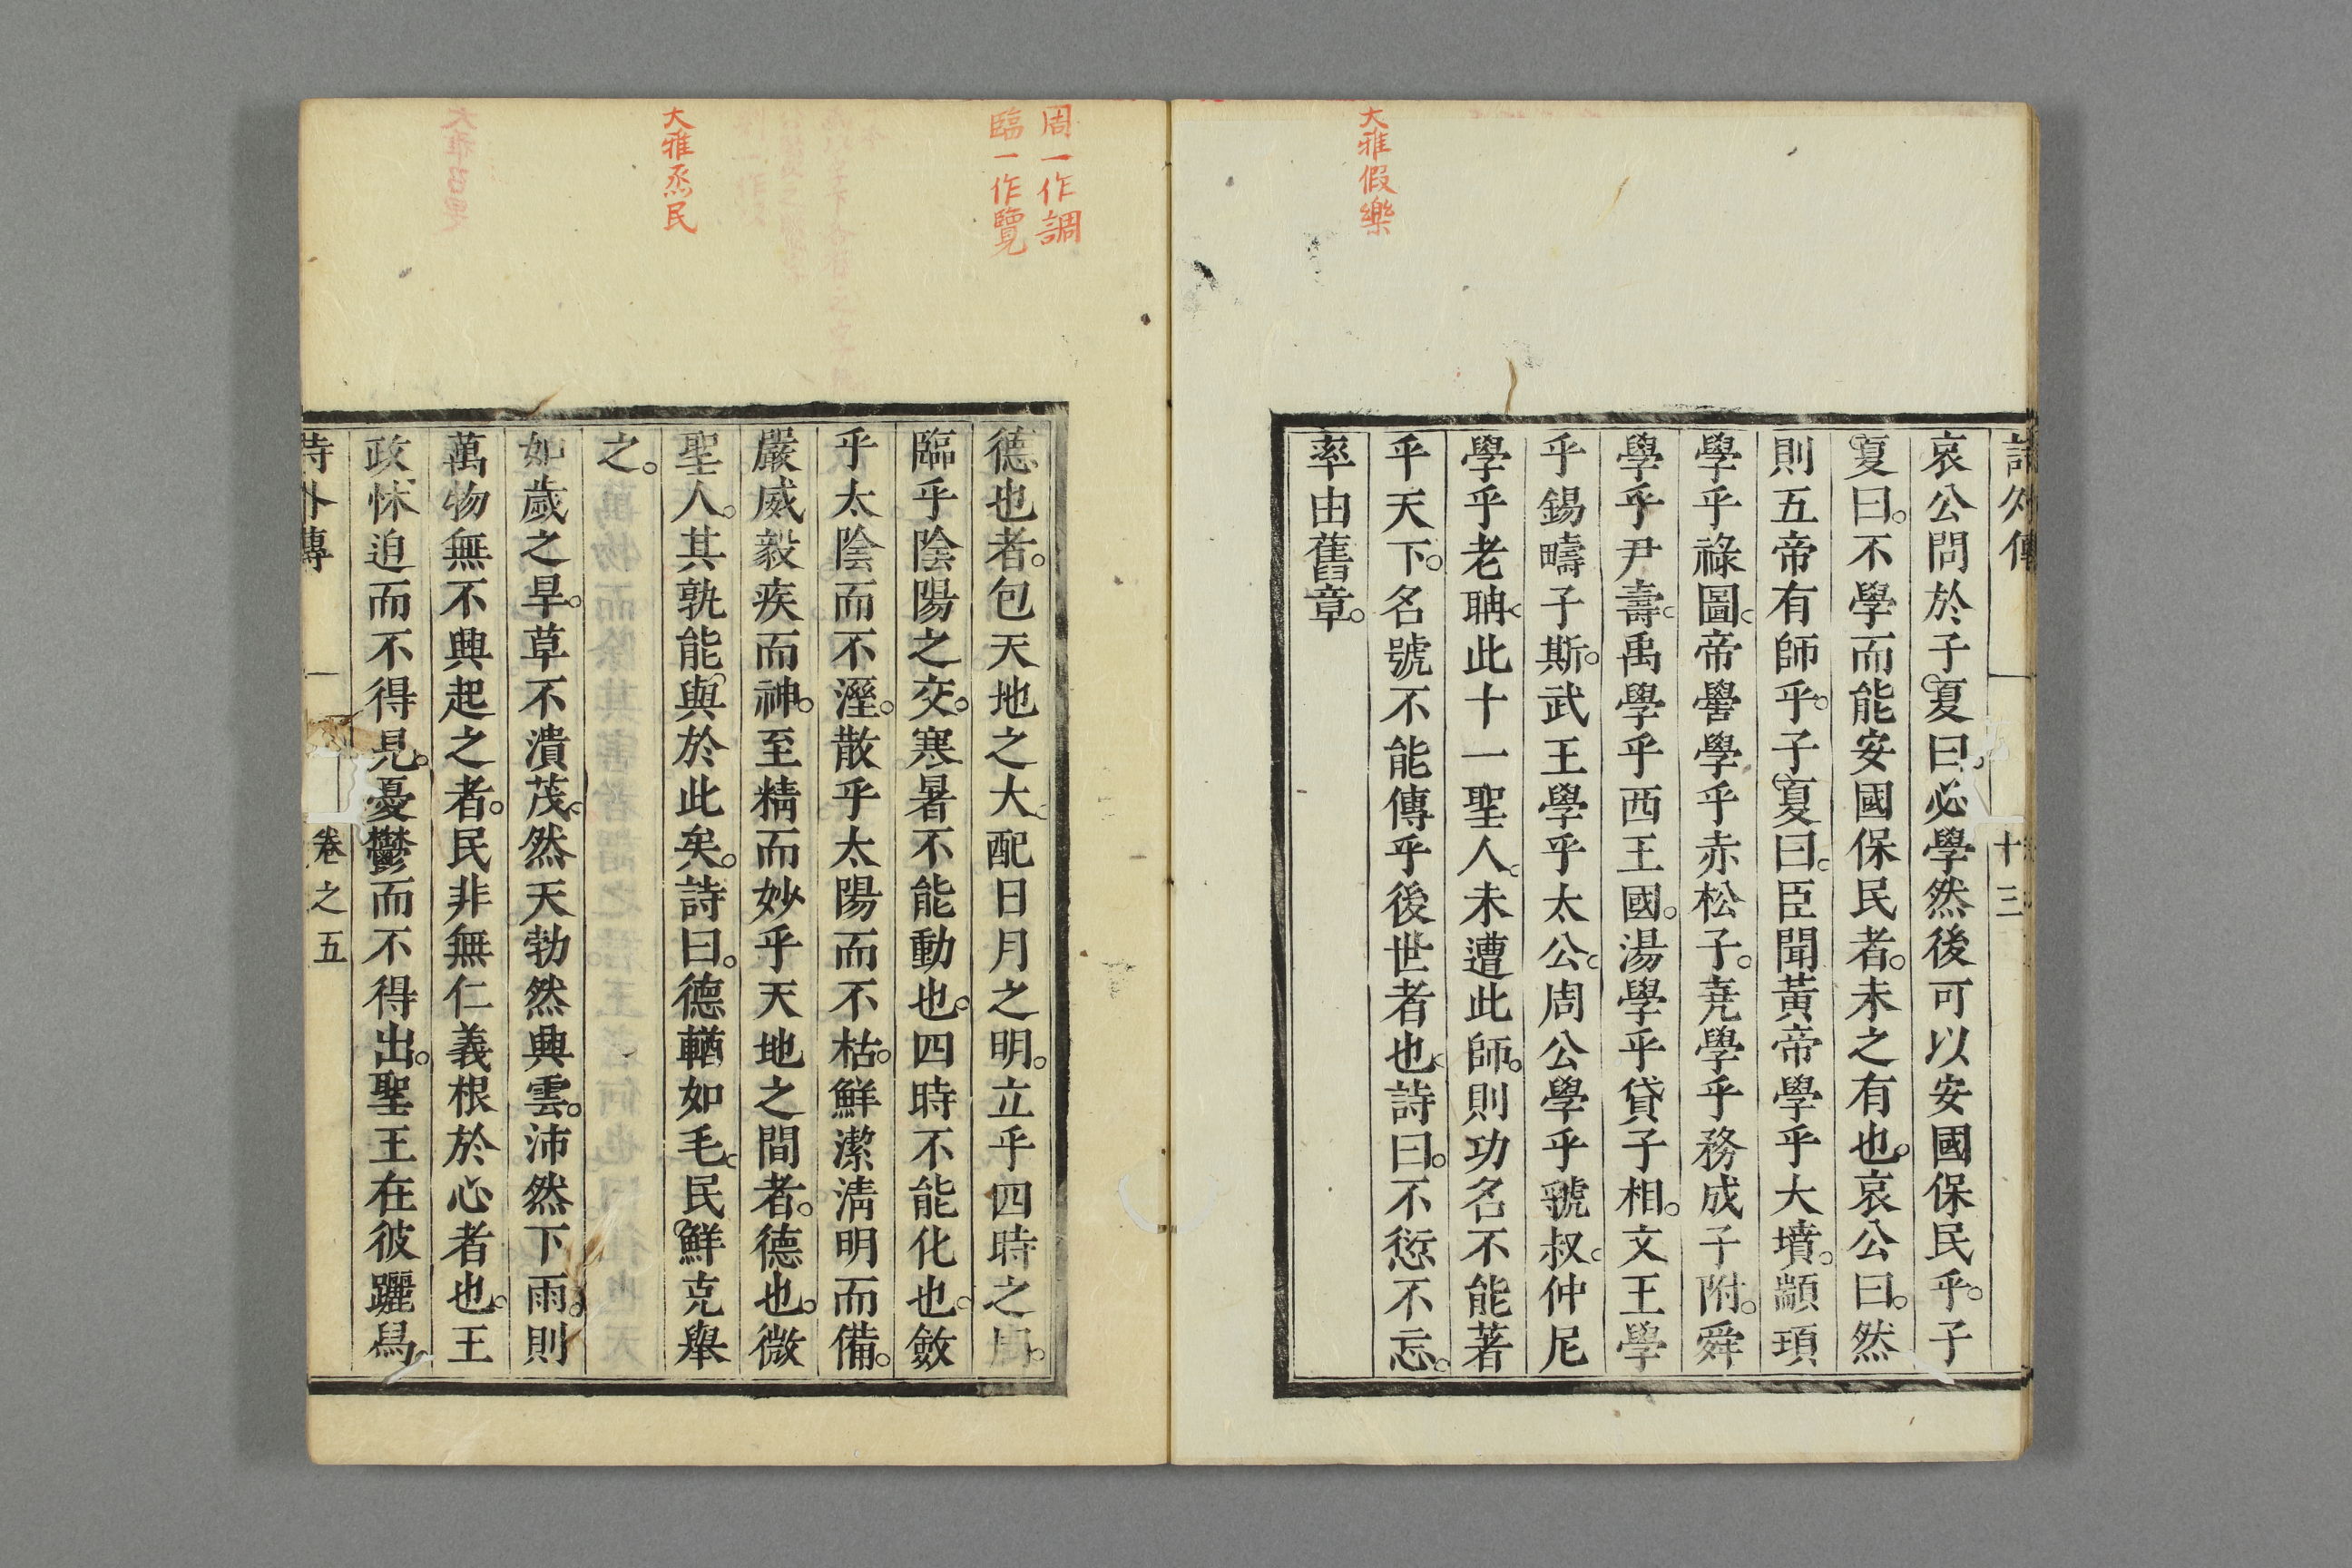 大雅假樂
哀公問於子夏曰必學然後可以安國保民乎。子
夏曰。不學而能安國保民者。未之有也。哀公曰。然
則五帝有師乎。子夏曰。臣聞黃帝學乎大墳。顓頊
學乎祿圖。帝嚳學乎赤松子。堯學乎務成子附。舜
學乎尹壽。禹學乎西王國。湯學乎貸子相。文王學
乎錫疇子斯。武王學乎太公。周公學乎虢叔。仲尼
學乎老聃。此十一聖人。未遭此師。則功名不能著
乎天下。名號不能傳乎後世者也。詩曰。不愆不忘。
率由舊章。
十三
周一作調
臨一作覽
大雅烝民
德也者。包天地之大。配日月之明。立乎四時之周。
臨乎陰陽之交。寒暑不能動也。四時不能化也。斂
乎太陰而不溼。散乎太陽而不枯。鮮潔淸明而備。
嚴威毅疾而神。至精而妙乎天地之間者。德也。微
聖人。其孰能與於此矣。詩曰。德輶如毛。民鮮克舉
之。
如歲之旱。草不潰茂。然天勃然興雲。沛然下雨。則
萬物無不興起之者。民非無仁義根於心者也。王
政怵迫而不得見。憂鬱而不得出。聖王在彼躧舄。
詩外傳
卷之五